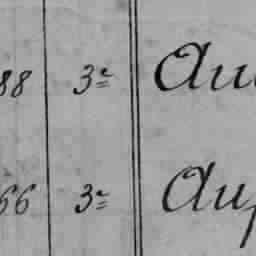 88 3e Au
66 3e Au